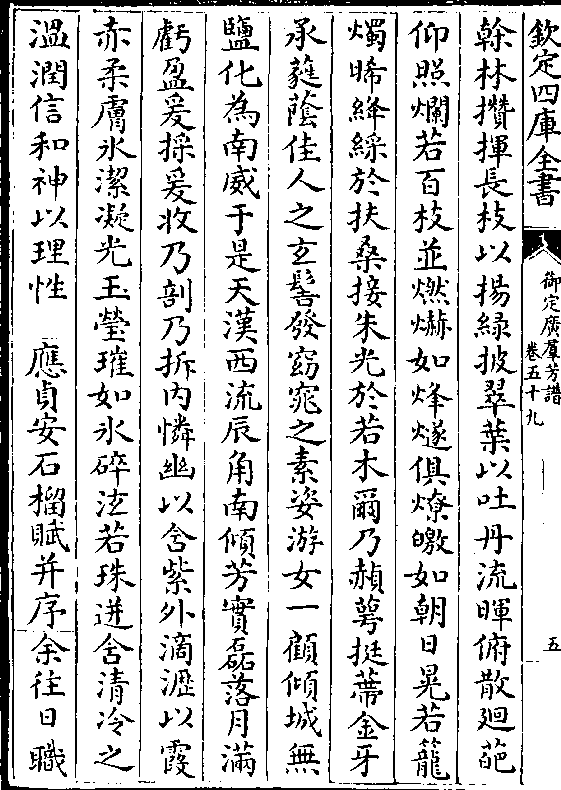 欽定四庫全書
御定廣羣芳譜
卷五十九
五
榦林攢揮長枝以揚緑披翠葉以吐丹流暉俯散廻葩
仰照爛若百枝並燃爀如烽燧俱燎皦如朝日晃若龍
燭晞絳綵於扶桑接朱光於若木爾乃赬萼挺蔕金牙
承蕤䕃佳人之玄髻發窈窕之素姿游女一顧傾城無
鹽化為南威于是天漢西流辰角南傾芳實磊落月滿
虧盈爰採爰收乃剖乃拆内憐幽以含紫外滴瀝以霞
赤柔膚氷潔凝光玉瑩璀如氷碎泫若珠迸含清冷之
温潤信和神以理性　應貞安石榴賦并序余往日職